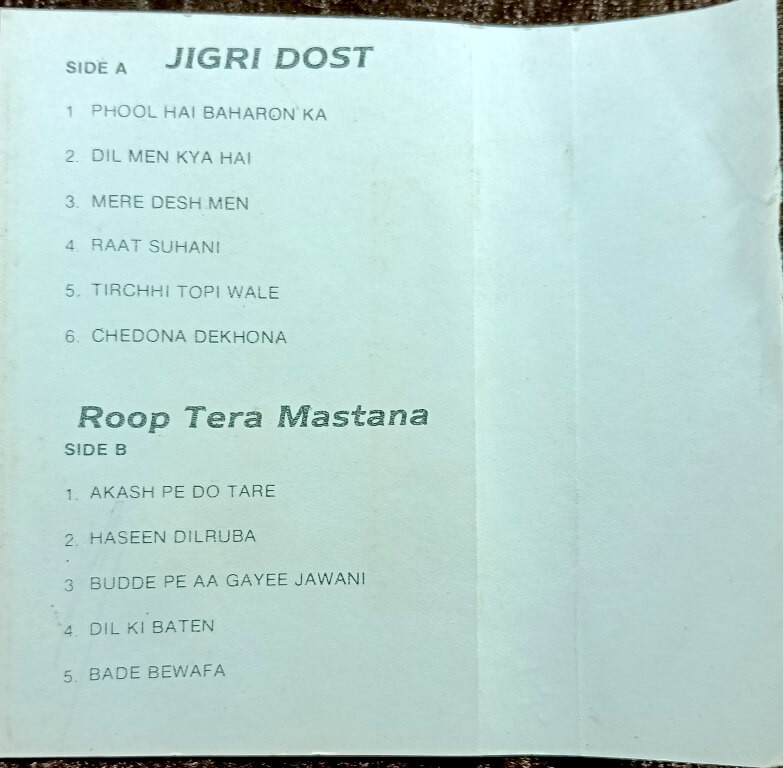 SIDE A JIGRI DOST
1 PHOOL HAI BAHARON KA
2. DIL MEN KYA HAI
3. MERE DESH MEN
4. RAAT SUHANI
5. TIRCHHI TOPI WALE
6. CHEDONA DEKHONA
Roop Tera Mastana
SIDE B
1. AKASH PE DO TARE
2. HASEEN DILRUBA
3 BUDDE PE AA GAYEE JAWANI
4. DIL KI BATEN
5. BADE BEWAFA